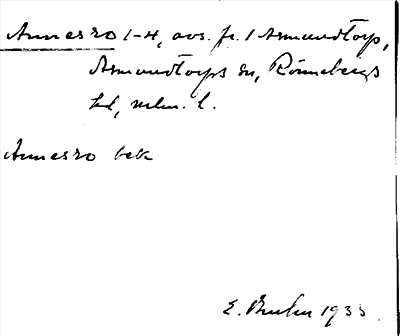 Annesro 1-4, avs. fr. 1 Asmundtorp,
Asmundtorps sn, Rönnebergs
hd, mlm. l.
Annesro bek
E. 1933